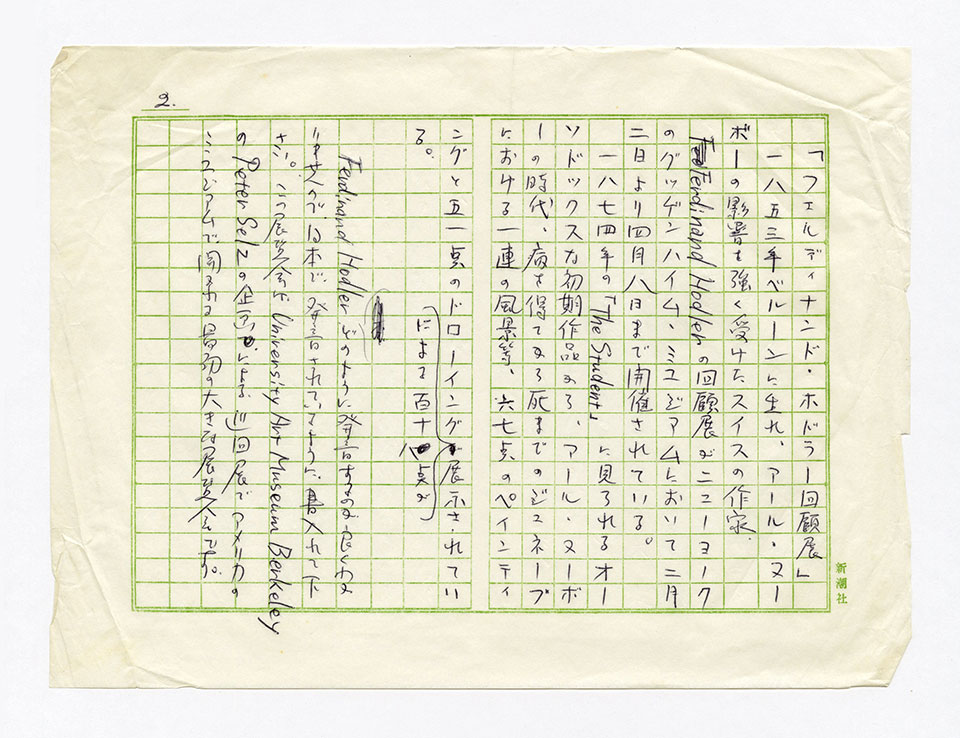 2.
「フェルディナンド・ホドラー回顧展」
一八五三年ベルーンに生れ、アール・ヌー
ボーの影響を強く受けたスイスの作家
Ferdinand Hodlerの回顧展がニューヨーク
のグッゲンハイム・ミュジアムにおいて二月
二日より四月八日まで開催されている。
一八七四年の「The Student」に見られるオー
ソドックスな初期作品から、アール・ヌーボ
ーの時代、病を得てから死までのジュネーブ
における一連の風景等、六七点のペインティ
ングと五一点のドローイング展示されてい
による百十八点が
る。
Ferdinand Hodler どのように発音するのか良くわか
りませんので日本で、発音されているように、書入れて下
さい。この展覧会は University Art Museum Berkeley
の Peter Selz の企画による巡回展でアメリカの
ミュージアムで開かれる最初の大きな展覧会です。
新潮社